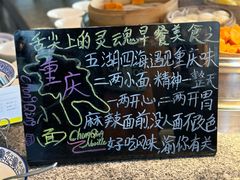 舌尖上的灵魂早餐美食之
重庆小面
Chongqing Noodle
五湖四海遇见重庆味
一两小面,精神一整天
二两开心,二两开胃
麻辣面前,没人面不改色
好吃风味,嗍你有关